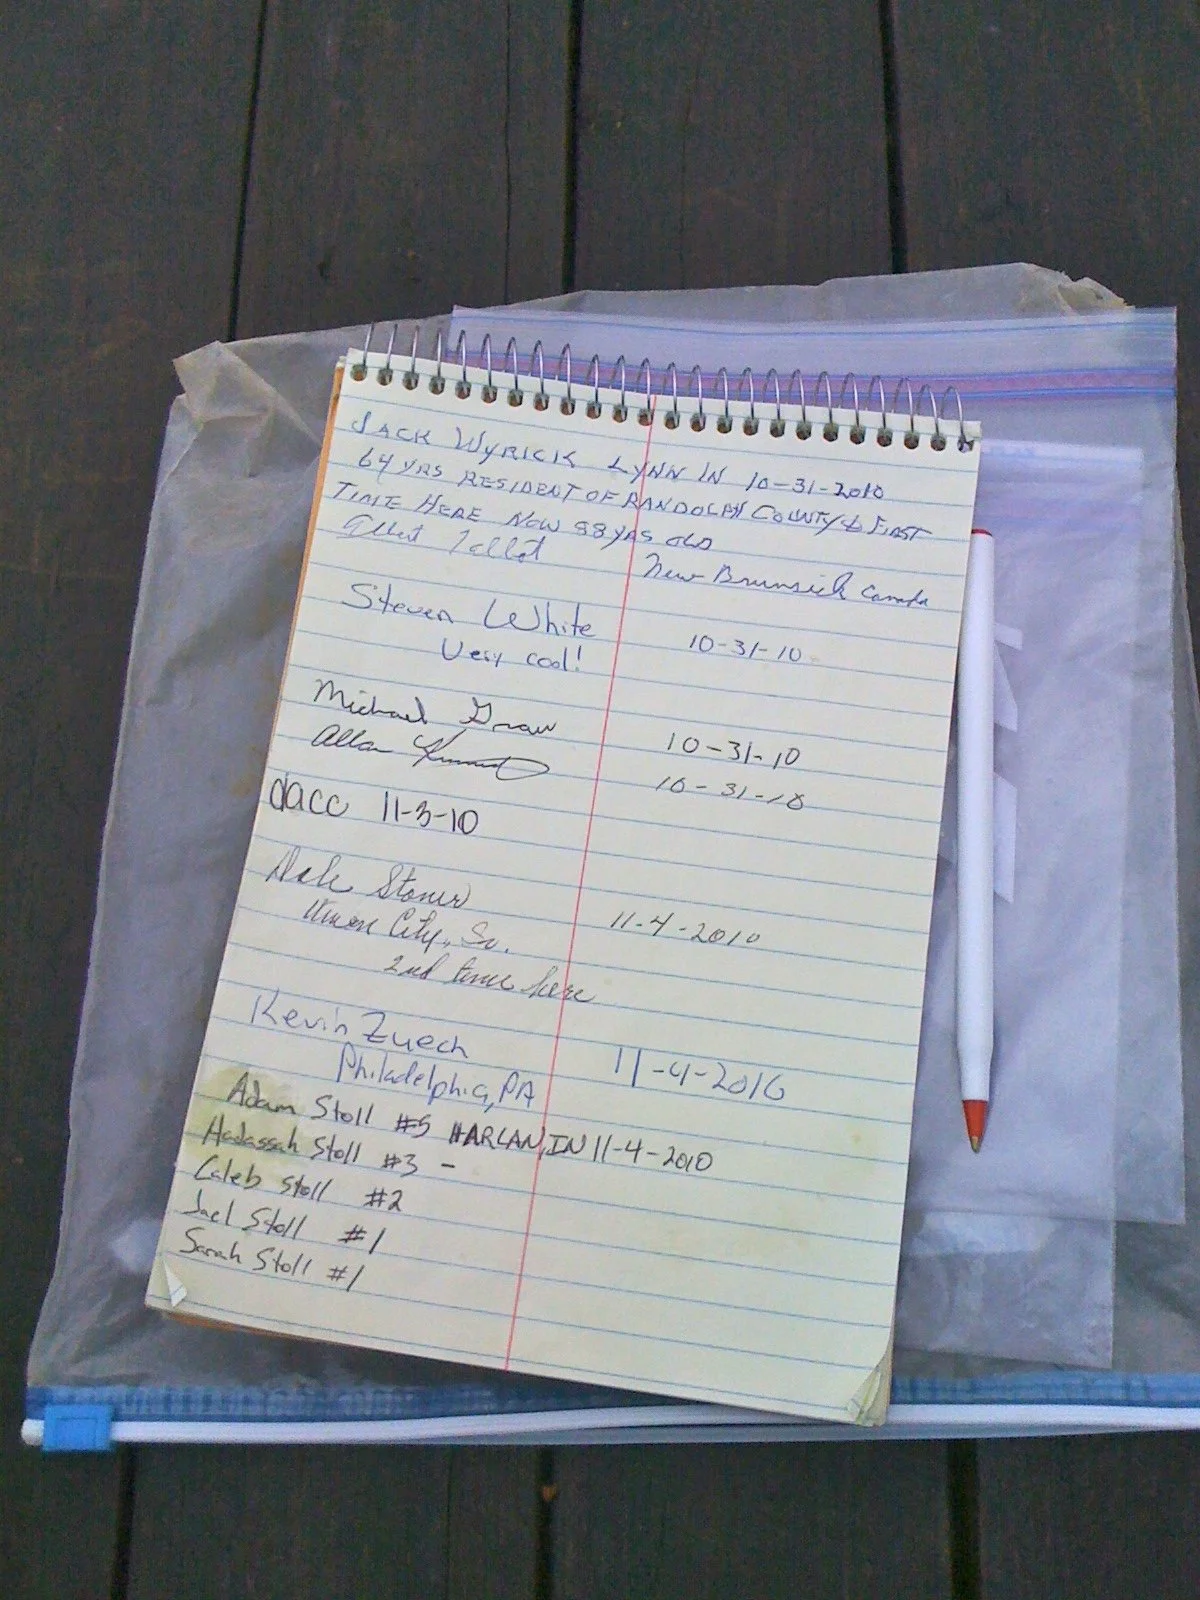 JACK WYRICK LYNN IN 10-31-2010
64 YRS RESIDENT OF RANDOLPH COUNTY & FIRST
TIME HERE NOW 88 YRS OLD
Talbot New Brunsick Canada
Steven White 10-31-10
Very cool!
Michael Graw 10-31-10
Allan 10-31-10
dacc 11-3-10
Dale Stoner 11-4-2010
Union City, In.
2nd time here
Kevin Zuech 11-4-2010
Philadelphia, PA
Adam Stoll #5 HARLAN, IN 11-4-2010
Hadassah Stoll #3 -
Caleb Stoll #2
Jael Stoll #1
Sarah Stoll #1